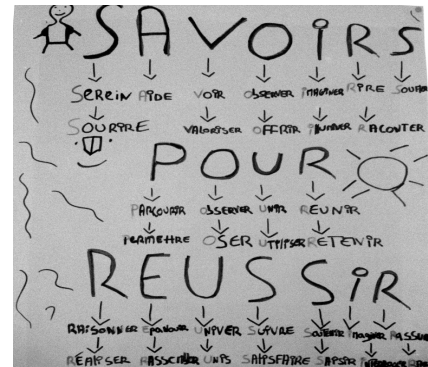 SAVOIRS
SEREIN AIDE VOIR OBSERVER IMAGINER RIRE
SOURIRE VALORISER OFFRIR RACONTER
POUR
PARCOURIR OBSERVER UNIR REUNIR
PERMETTRE OSER UTILISER RETENIR
REUSSIR
RAISONNER UNIVER SUIVRE SOUTENIR IMAGINER RASSU
REALISER UNIS SATISFAIRE SAISIR